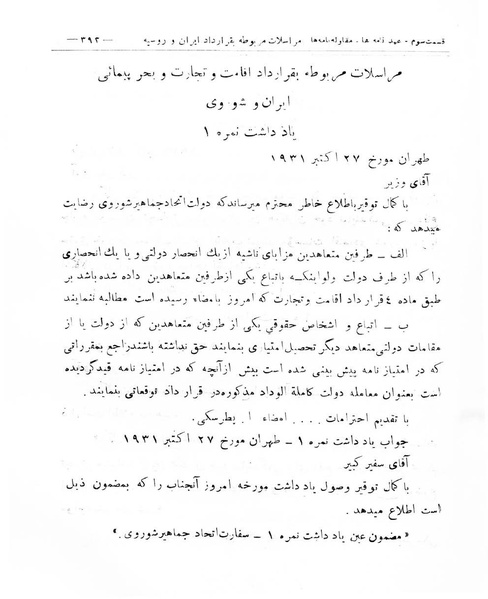 قسمت سوم - عهد نامه ها . مقاوله‌نامه‌ها مراسلات مربوطه بقرارداد ایران و روسیه — ۳۹۲ —
مراسلات مربوطه بقرارداد اقامت و تجارت و بحر پیمائی
ایران و شوروی
یاد داشت نمره ۱
طهران مورخ ۲۷ اکتبر ۱۹۳۱
آقای وزیر
با کمال توقیر باطلاع خاطر محترم میرساند که دولت اتحاد جماهیر شوروی رضایت
میدهد که :
الف ــ طرفین متعاهدین مزایای ناشیه از یك انحصار دولتی و یا یك انحصاری
را که از طرف دولت ولو اینکــه باتباع یکی از طرفین متعاهدین داده شده باشد بر
طبق ماده ٤ قرار داد اقامت و تجارت که امروز بامضاء رسیده است مطالبه ننمایند
ب ــ اتباع و اشخاص حقوقی یکی از طرفین متعاهدین که از دولت یا از
مقامات دولتی متعاهد دیگر تحصیل امتیازی بنمایند حق نداشته باشند راجع بمقرراتی
که در امتیاز نامه پیش بینی شده است بیش از آنچه که در امتیاز نامه قید گردیده
است بعنوان معامله دولت کاملة الوداد مذکوره در قرار داد توقعاتی بنمایند .
با تقدیم احترامات . . . . امضاء ا . پطرسکی.
جواب یاد داشت نمره ۱ ــ طهران مورخ ۲۷ اکتبر ۱۹۳۱
آقای سفیر کبیر
با کمال توقیر وصول یاد داشت مورخه امروز آنجناب را که بمضمون ذیل
است اطلاع میدهد .
« مضمون عین یاد داشت نمره ۱ ــ سفارت اتحاد جماهیر شوروی . »